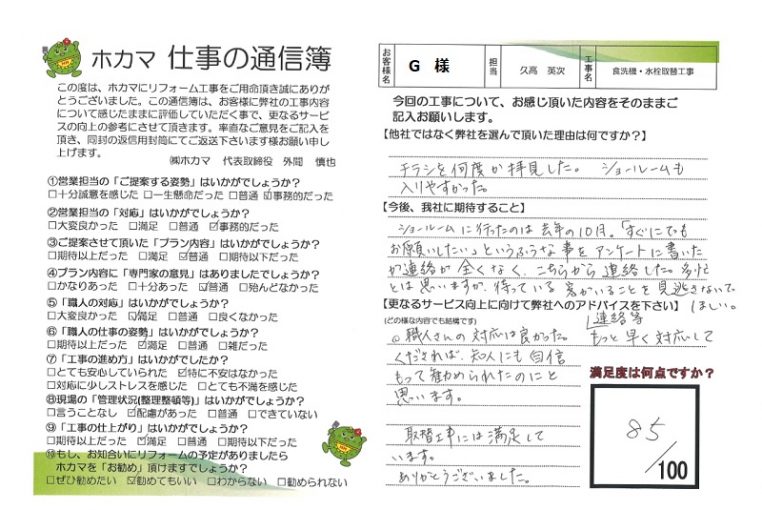 ホカマ 仕事の通信簿
この度は、ホカマにリフォーム工事をご用命頂き誠にありが
とうございました。この通信簿は、お客様に弊社の工事内容
について感じたままに評価していただく事で、更なるサービ
スの向上の参考にさせて頂きます。率直なご意見をご記入を
頂き、同封の返信用封筒にてご返送下さいます様お願い申し
上げます。
㈱ホカマ 代表取締役 外間 慎也
①営業担当の「ご提案する姿勢」はいかがでしょうか?
□十分誠意を感じた □一生懸命だった □普通 ☑事務的だった
②営業担当の「対応」はいかがでしょうか?
□大変良かった □満足 □普通 ☑事務的だった
③ご提案させて頂いた「プラン内容」はいかがでしょうか?
□期待以上だった □満足 ☑普通 □期待以下だった
④プラン内容に「専門家の意見」はありましたでしょうか?
□かなりあった □十分あった ☑普通 □殆んどなかった
⑤「職人の対応」はいかがでしょうか?
□大変良かった ☑満足 □普通 □良くなかった
⑥「職人の仕事の姿勢」はいかがでしょうか?
□期待以上だった ☑満足 □普通 □雑だった
⑦「工事の進め方」はいかがでしたか?
□とても安心していられた ☑特に不安はなかった
□対応に少しストレスを感じた □とても不満を感じた
⑧現場の「管理状況(整理整頓等)」はいかがでしょうか?
□言うことなし ☑配慮があった □普通 □できていない
⑨「工事の仕上がり」はいかがでしょうか?
□期待以上だった ☑満足 □普通 □期待以下だった
⑩もし、お知合いにリフォームの予定がありましたら
ホカマを「お勧め」頂けますでしょうか?
□ぜひ勧めたい ☑勧めてもいい □わからない □勧められない
お客様名 G 様 担当 久高 英次 工事名 食洗機・水栓取替工事
今回の工事について、お感じ頂いた内容をそのままご
記入お願いします。
【他社ではなく弊社を選んで頂いた理由は何ですか?】
チラシを何度か拝見した。 ショールームも
入りやすかった。
【今後、我社に期待すること】
ショールームに行ったのは去年の10月。「すぐにでも
お願いしたい」というような事をアンケートに書いた
が連絡が全くなく、こちらから連絡した。多忙
とは思いますが、待っている客がいることを見逃さないで
ほしい。
【更なるサービス向上に向けて弊社へのアドバイスを下さい】
(どの様な内容でも結構です)
連絡等
◎職人さんの対応は良かった。 もっと早く対応して
くだされば、知人にも自信
もって勧められたのにと
思います。
取替工事には満足して
います。
ありがとうございました。
満足度は何点ですか?
85/100